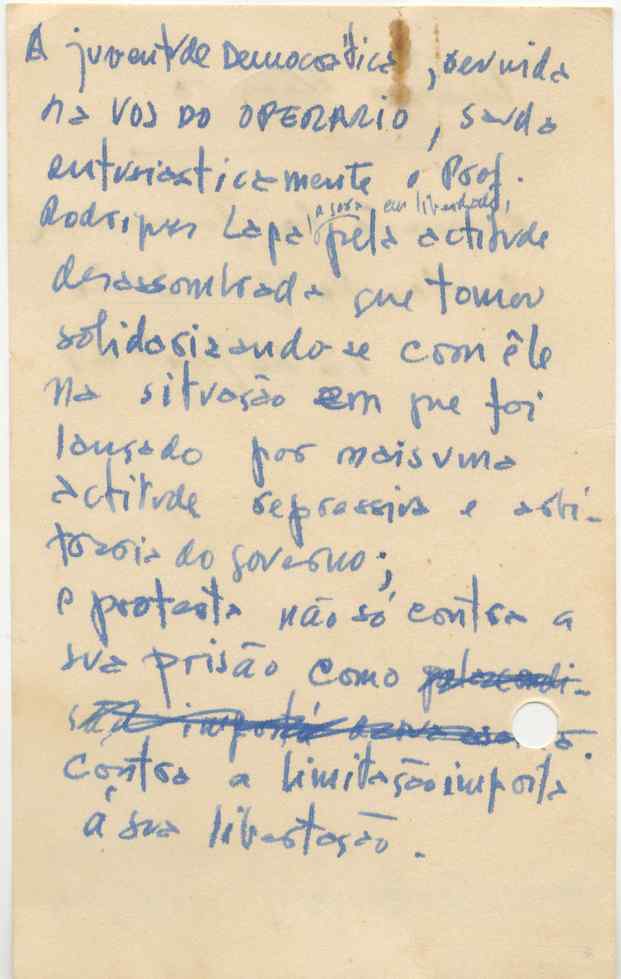 A juventude Democrática, reunida
na VOS DO OPERARIO, sauda
entusiasticamente o Prof.
, agora em liberdade,
Rodrigues Lapa pela actitude
desassombrada que tomou
solidarizando-se com êle
na situação em que foi
lançado por mais uma
actitude repressiva e arbi-
traria do governo;
e protesta não só contra a
sua prisão como
contra a limitação imposta
á sua libertação.